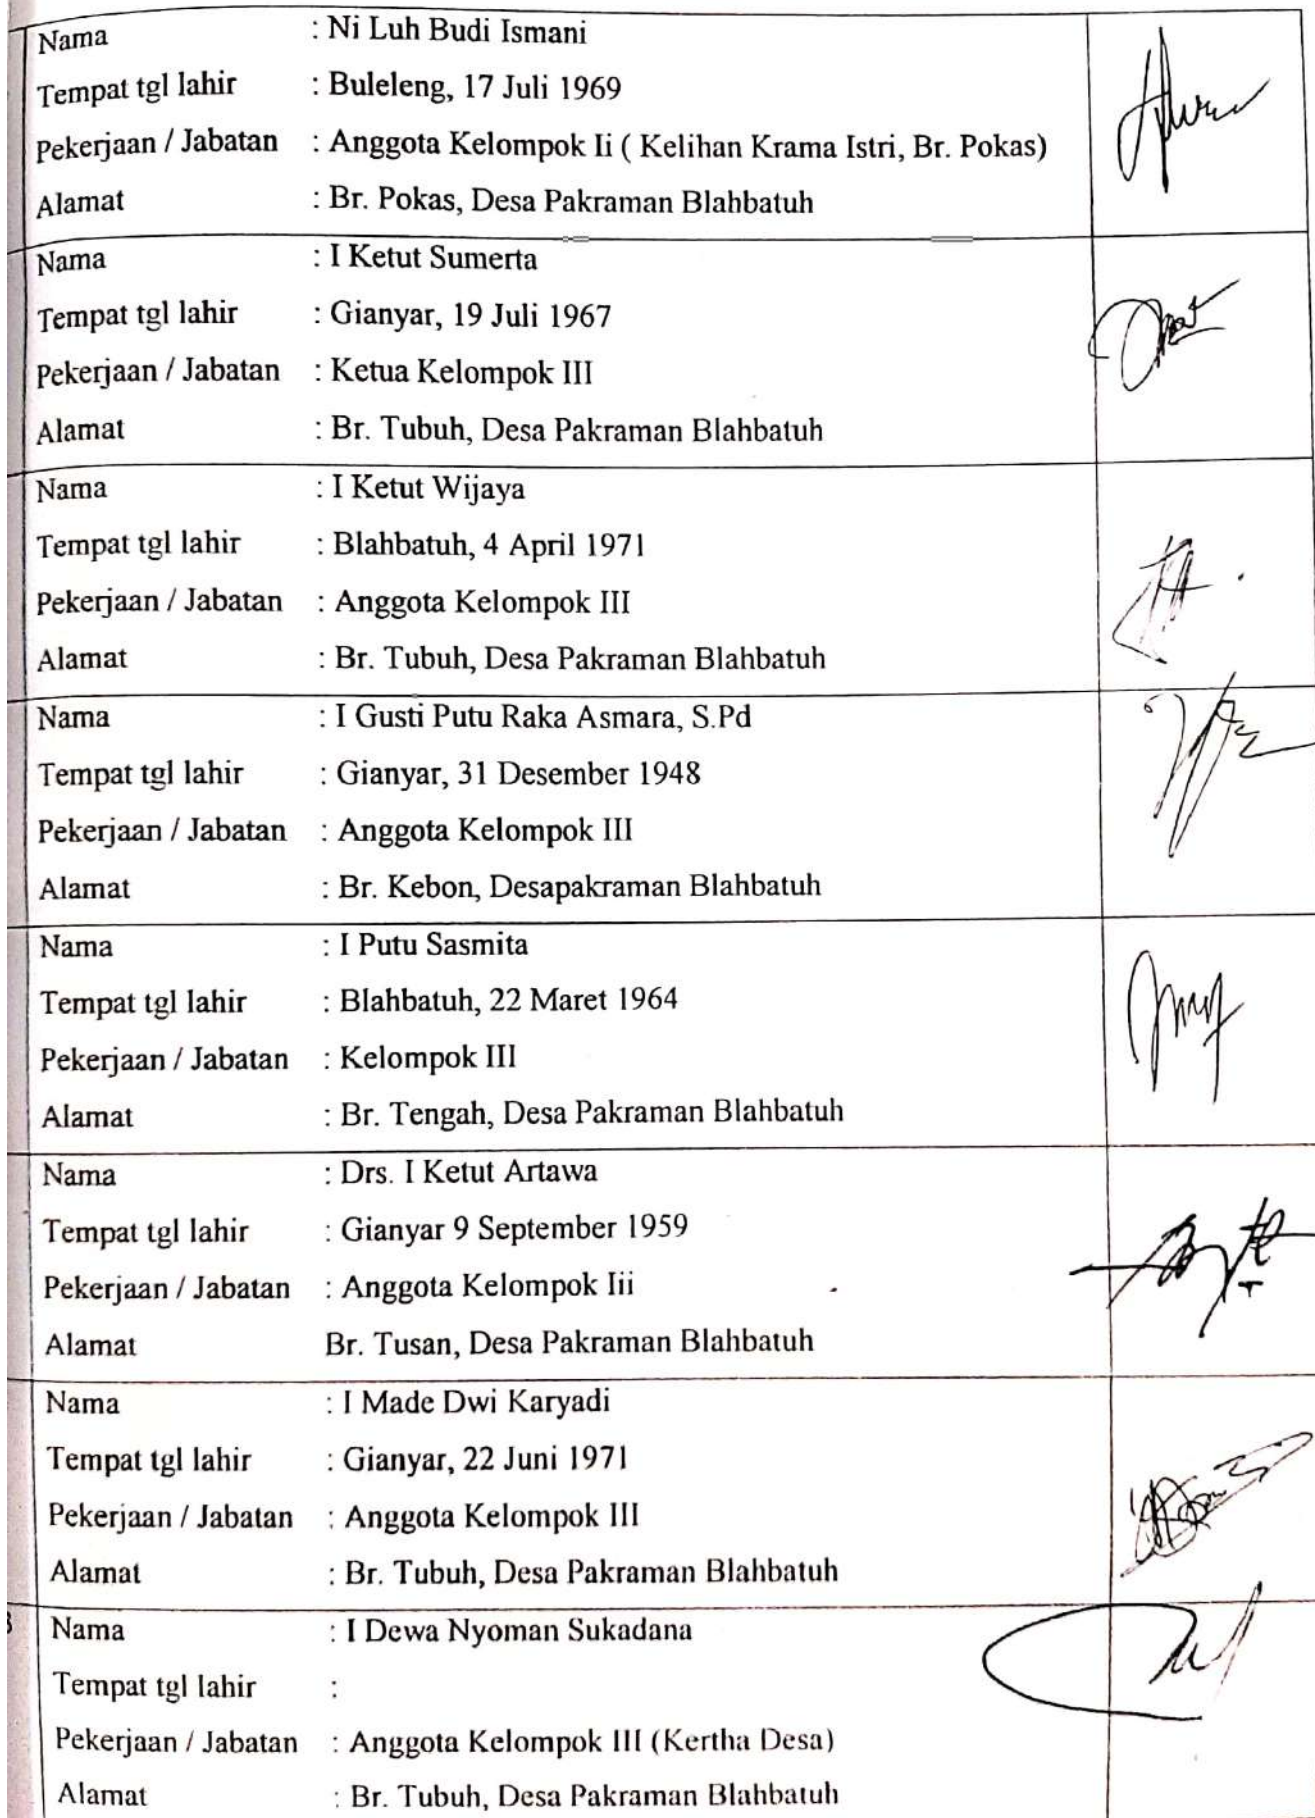 Nama : Ni Luh Budi Ismani
Tempat tgl lahir : Buleleng, 17 Juli 1969
Pekerjaan / Jabatan : Anggota Kelompok Ii ( Kelihan Krama Istri, Br. Pokas)
Alamat : Br. Pokas, Desa Pakraman Blahbatuh
Nama : I Ketut Sumerta
Tempat tgl lahir : Gianyar, 19 Juli 1967
Pekerjaan / Jabatan : Ketua Kelompok III
Alamat : Br. Tubuh, Desa Pakraman Blahbatuh
Nama : I Ketut Wijaya
Tempat tgl lahir : Blahbatuh, 4 April 1971
Pekerjaan / Jabatan : Anggota Kelompok III
Alamat : Br. Tubuh, Desa Pakraman Blahbatuh
Nama : I Gusti Putu Raka Asmara, S.Pd
Tempat tgl lahir : Gianyar, 31 Desember 1948
Pekerjaan / Jabatan : Anggota Kelompok III
Alamat : Br. Kebon, Desapakraman Blahbatuh
Nama : I Putu Sasmita
Tempat tgl lahir : Blahbatuh, 22 Maret 1964
Pekerjaan / Jabatan : Kelompok III
Alamat : Br. Tengah, Desa Pakraman Blahbatuh
Nama : Drs. I Ketut Artawa
Tempat tgl lahir : Gianyar 9 September 1959
Pekerjaan / Jabatan : Anggota Kelompok Iii
Alamat Br. Tusan, Desa Pakraman Blahbatuh
Nama : I Made Dwi Karyadi
Tempat tgl lahir : Gianyar, 22 Juni 1971
Pekerjaan / Jabatan : Anggota Kelompok III
Alamat : Br. Tubuh, Desa Pakraman Blahbatuh
Nama : I Dewa Nyoman Sukadana
Tempat tgl lahir :
Pekerjaan / Jabatan : Anggota Kelompok III (Kertha Desa)
Alamat : Br. Tubuh, Desa Pakraman Blahbatuh